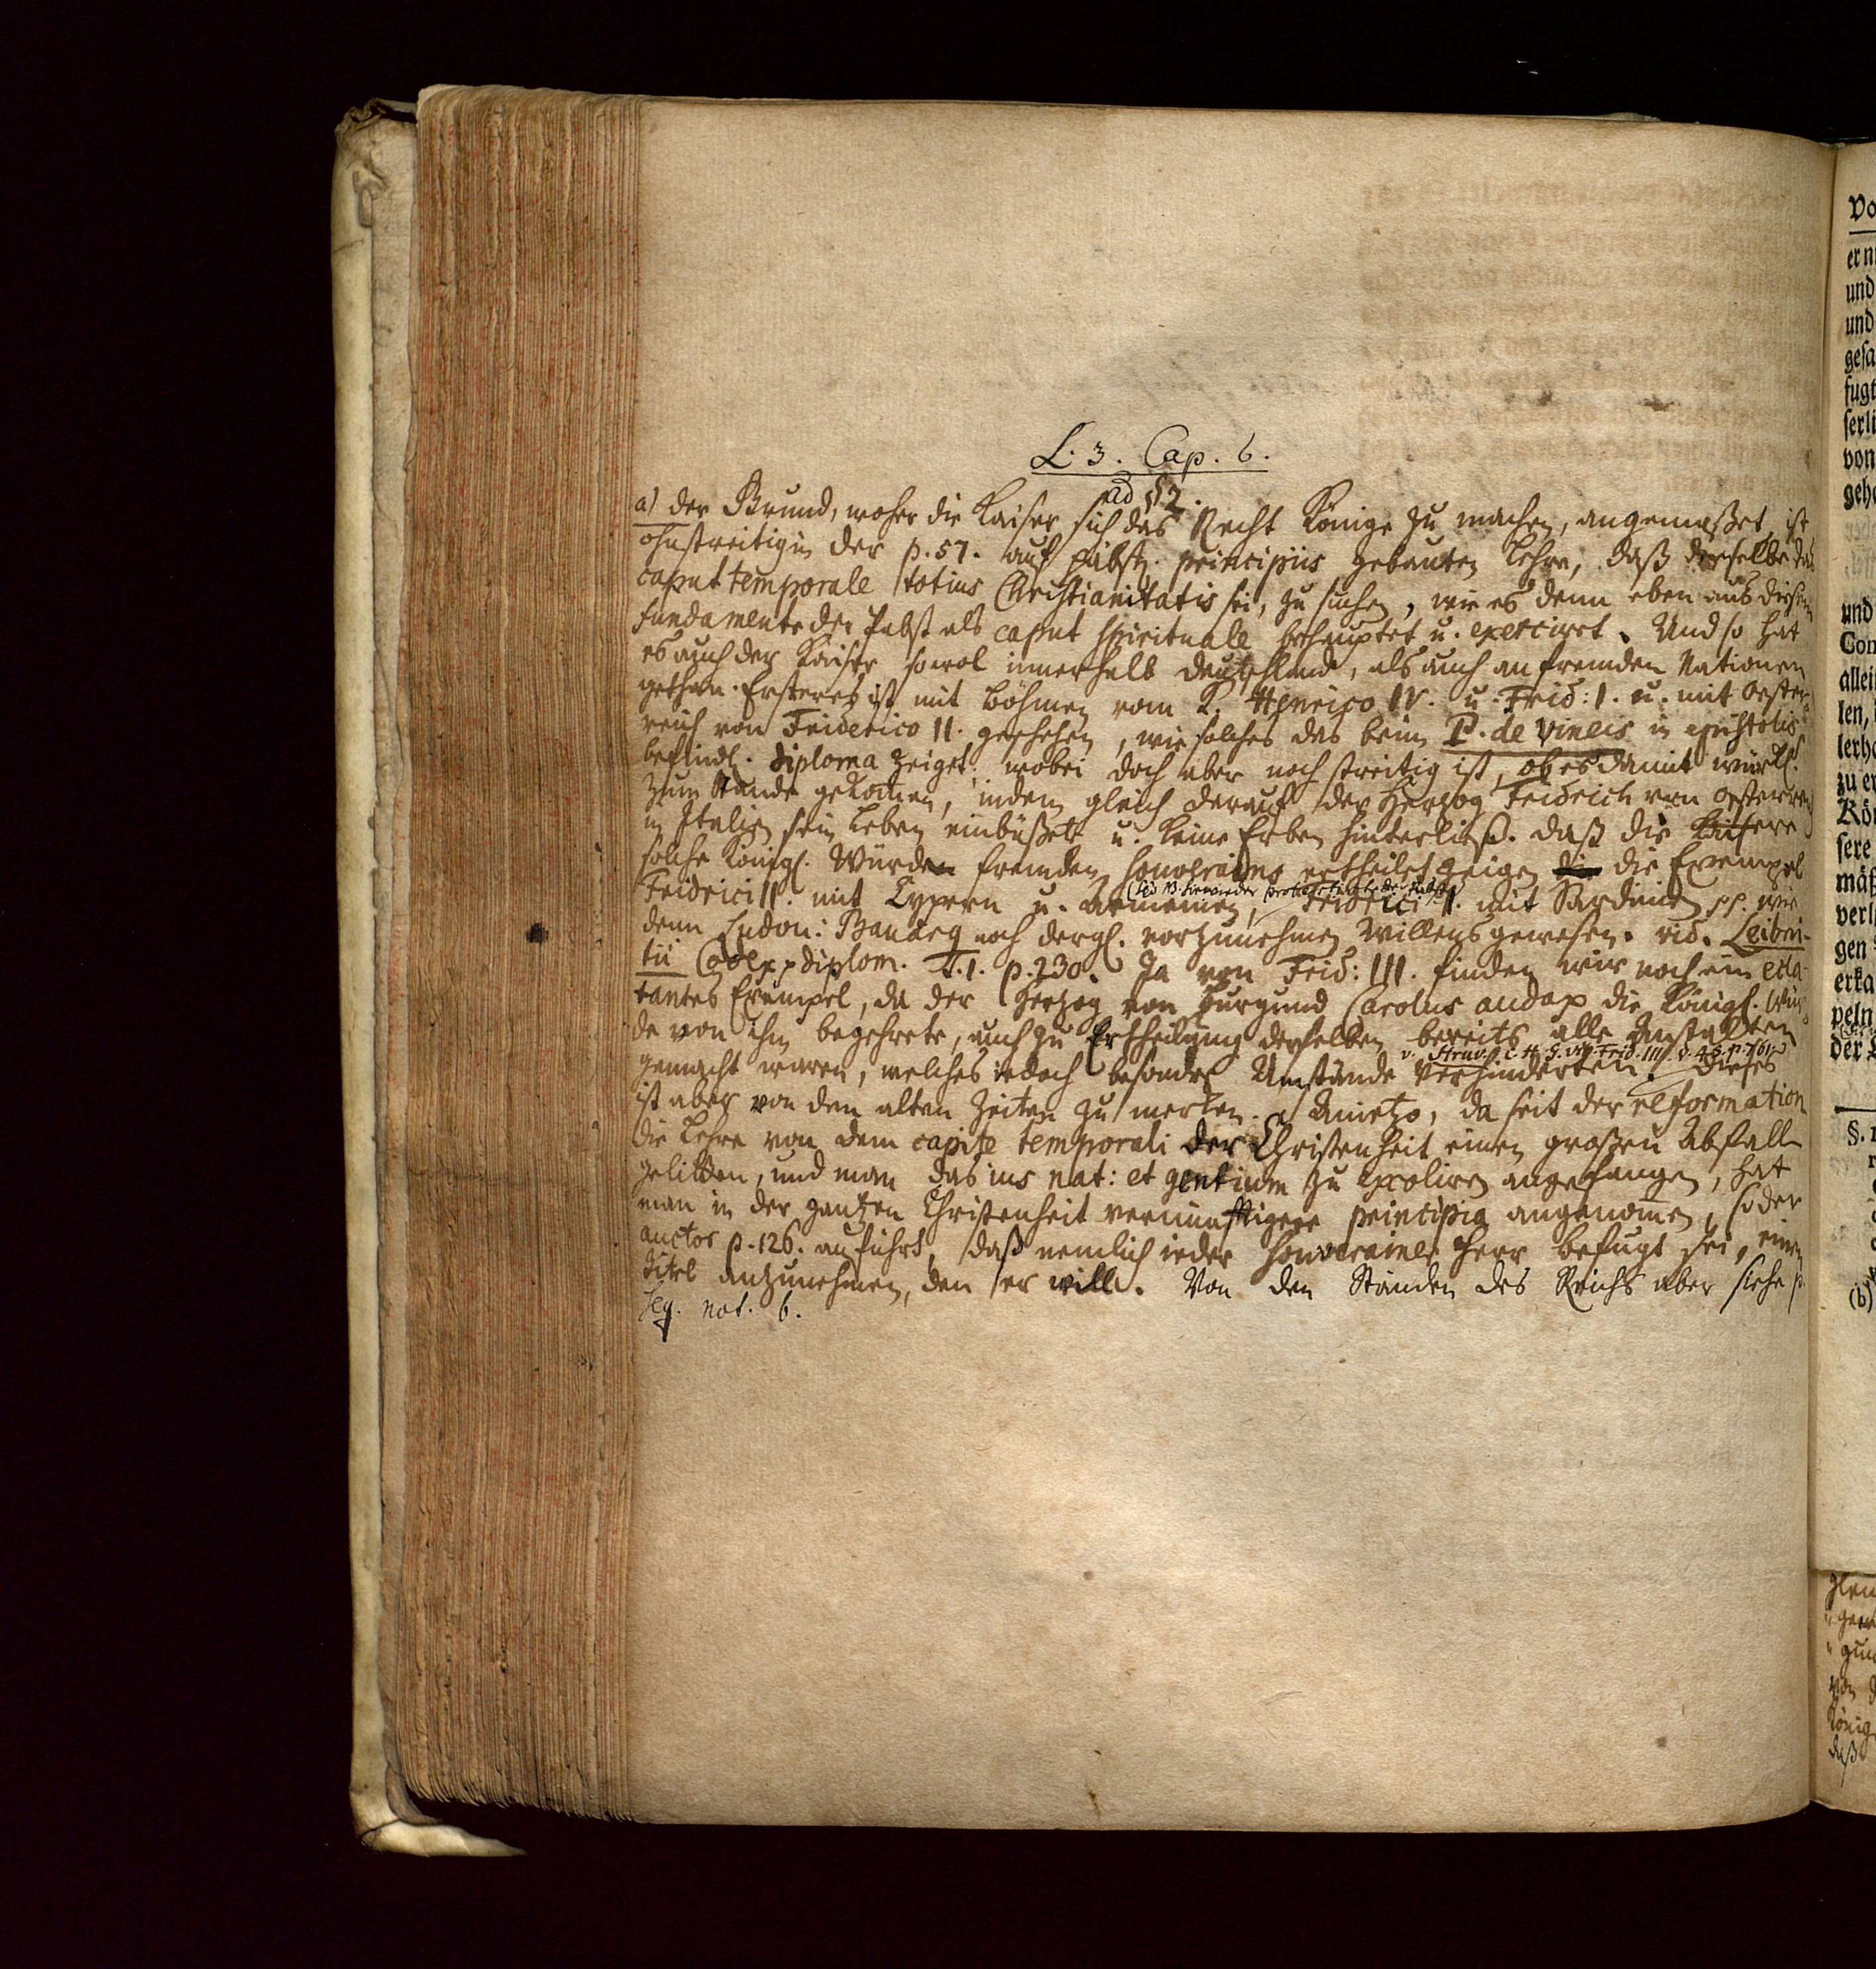 L. 3. Cap. 6.
ad §2.
a) der Grund, woher die Kaiser sich das Recht Könige zu machen, angemaßet, ist
ohnstreitig in der p. 57. auf päbstl. principiis gebauten Lehre, daß derselbe das
caput temporale totius Christianitatis sei, zu suchen, wie es denn eben aus diesem
Fundamente der Pabst als caput spirituale behauptet u. exerciret. Und so hat
es auch der Kaiser sowol innerhalb Deutschland, als auch an fremden Nationen
gethan. Ersteres ist mit Böhmen vom K. Henrico IV. u. Frid: I. u. mit Oester-
reich von Friderico II. geschehen, wie solches das beim P. de Vineis in epistolis
befindl. diploma zeiget; wobei doch aber noch streitig ist, ob es damit würkl.
zum Stande gekommen, indem gleich darauf der Herzog Fridrich von Oesterreich
in Italien sein Leben einbüßete u. keine Erben hinterließ. Daß die Kaisere
solche Königl. Würden fremden souverains ertheilet zeigen die Exempel
(sed NB. hierwieder protestirte der Pabst)
Fridrici II. mit Cypern u. Armenien, Fridrici II. mit Sardinien pp. wie
denn Ludov: Bavarg noch dergl. vorzunehmen willens gewesen. vid. Leibni-
tii Codex diplom. T. I. p. 230. Ja von Frid: III. finden wir noch ein ecla-
tantes Exempel, da der Herzog von Burgund Carolus audax die Königl. Wür-
de von ihm begehrete, auch zu Ertheilung derselben bereits alle Anstallten
v. Struv. C. H. G. Frid. III. §. 45. p. 761
gemacht waren, welches iedoch besondre Umstände verhinderten. Dieses
ist aber von den alten Zeiten zu merken. Anietzo, da seit der reformation
die Lehre von dem capite temporali der Christenheit einen großen Abfall
gelitten, und man das ius nat: et gentium zu excoliren angefangen, hat
man in der gantzen Christenheit vernünfftigere principia angenommen, so der
auctor p. 126. anführt, daß nemlich ieder souverainer Herr befugt sei, einen
Titel anzunehmen, den er will. Von den Ständen des Reichs aber siehe p.
seq. not. b.
Vo
und
und
gesa
fugt
serli
von
und
allei
len,
zu er
Kön
sere
mäß
gen
erka
peln
der
§. 1
(b)